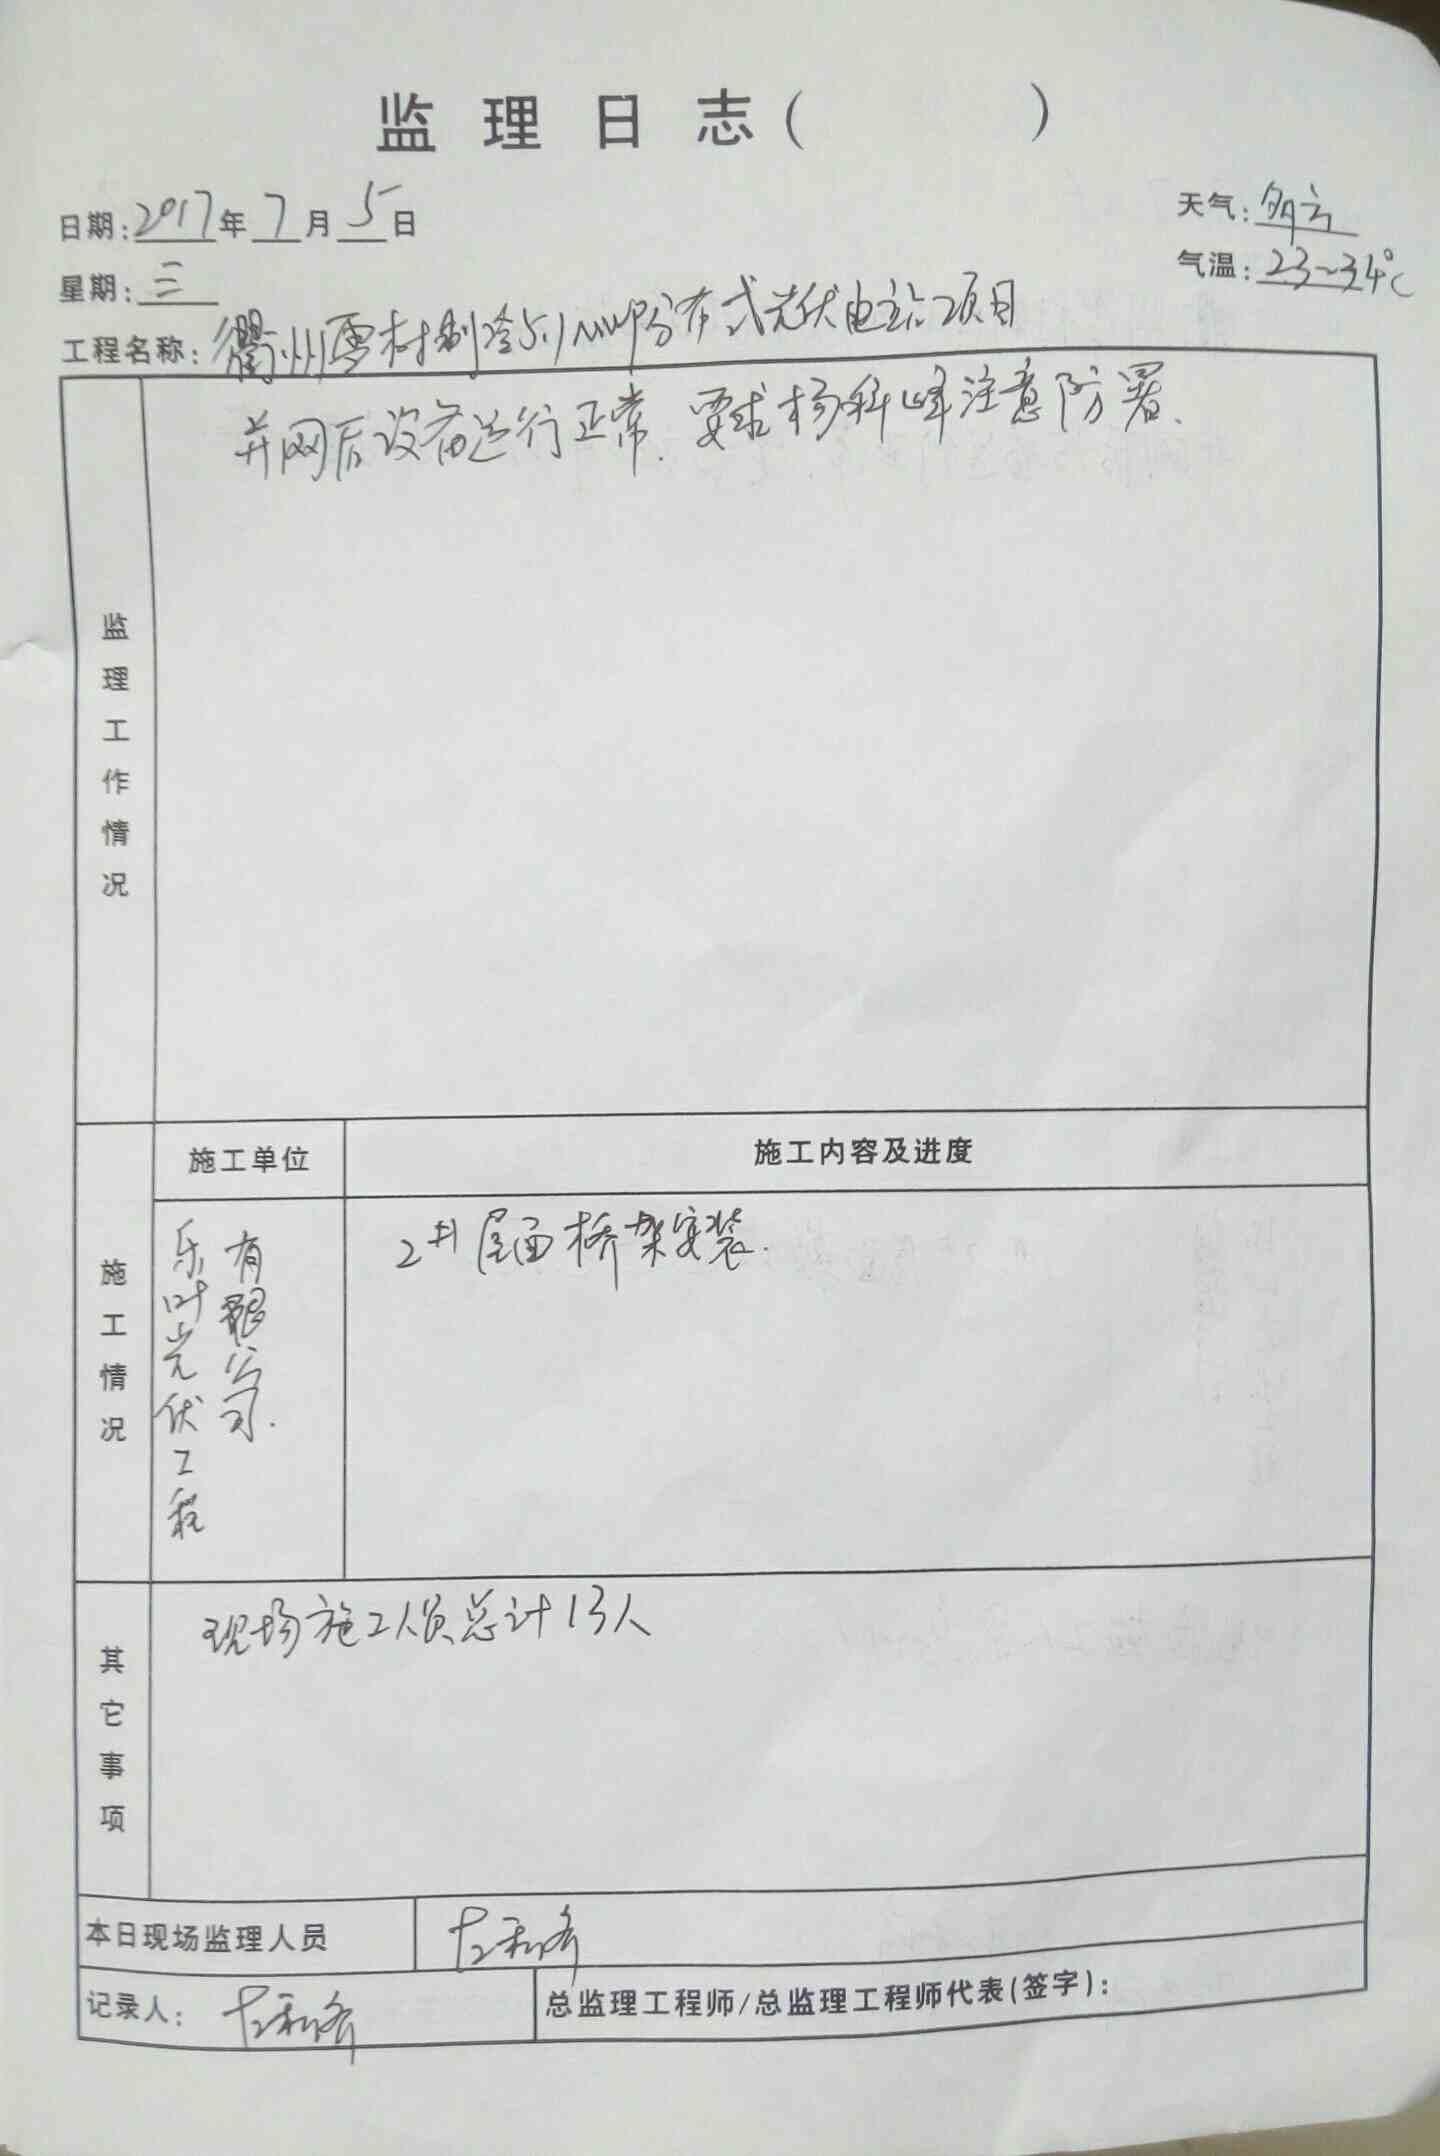 监理日志（ ）
日期：2017年7月5日
天气：多云
星期：三
气温：23~34℃
工程名称：衢州雪村制冷5.1MWP分布式光伏电站项目
监理工作情况
并网后设备运行正常.要求杨科峰注意防署.
施工情况
施工单位
施工内容及进度
乐叶光伏工程
有限公司.
2#屋面桥架安装.
其它事项
现场施工人员总计13人
本日现场监理人员
记录人：
总监理工程师/总监理工程师代表(签字)：